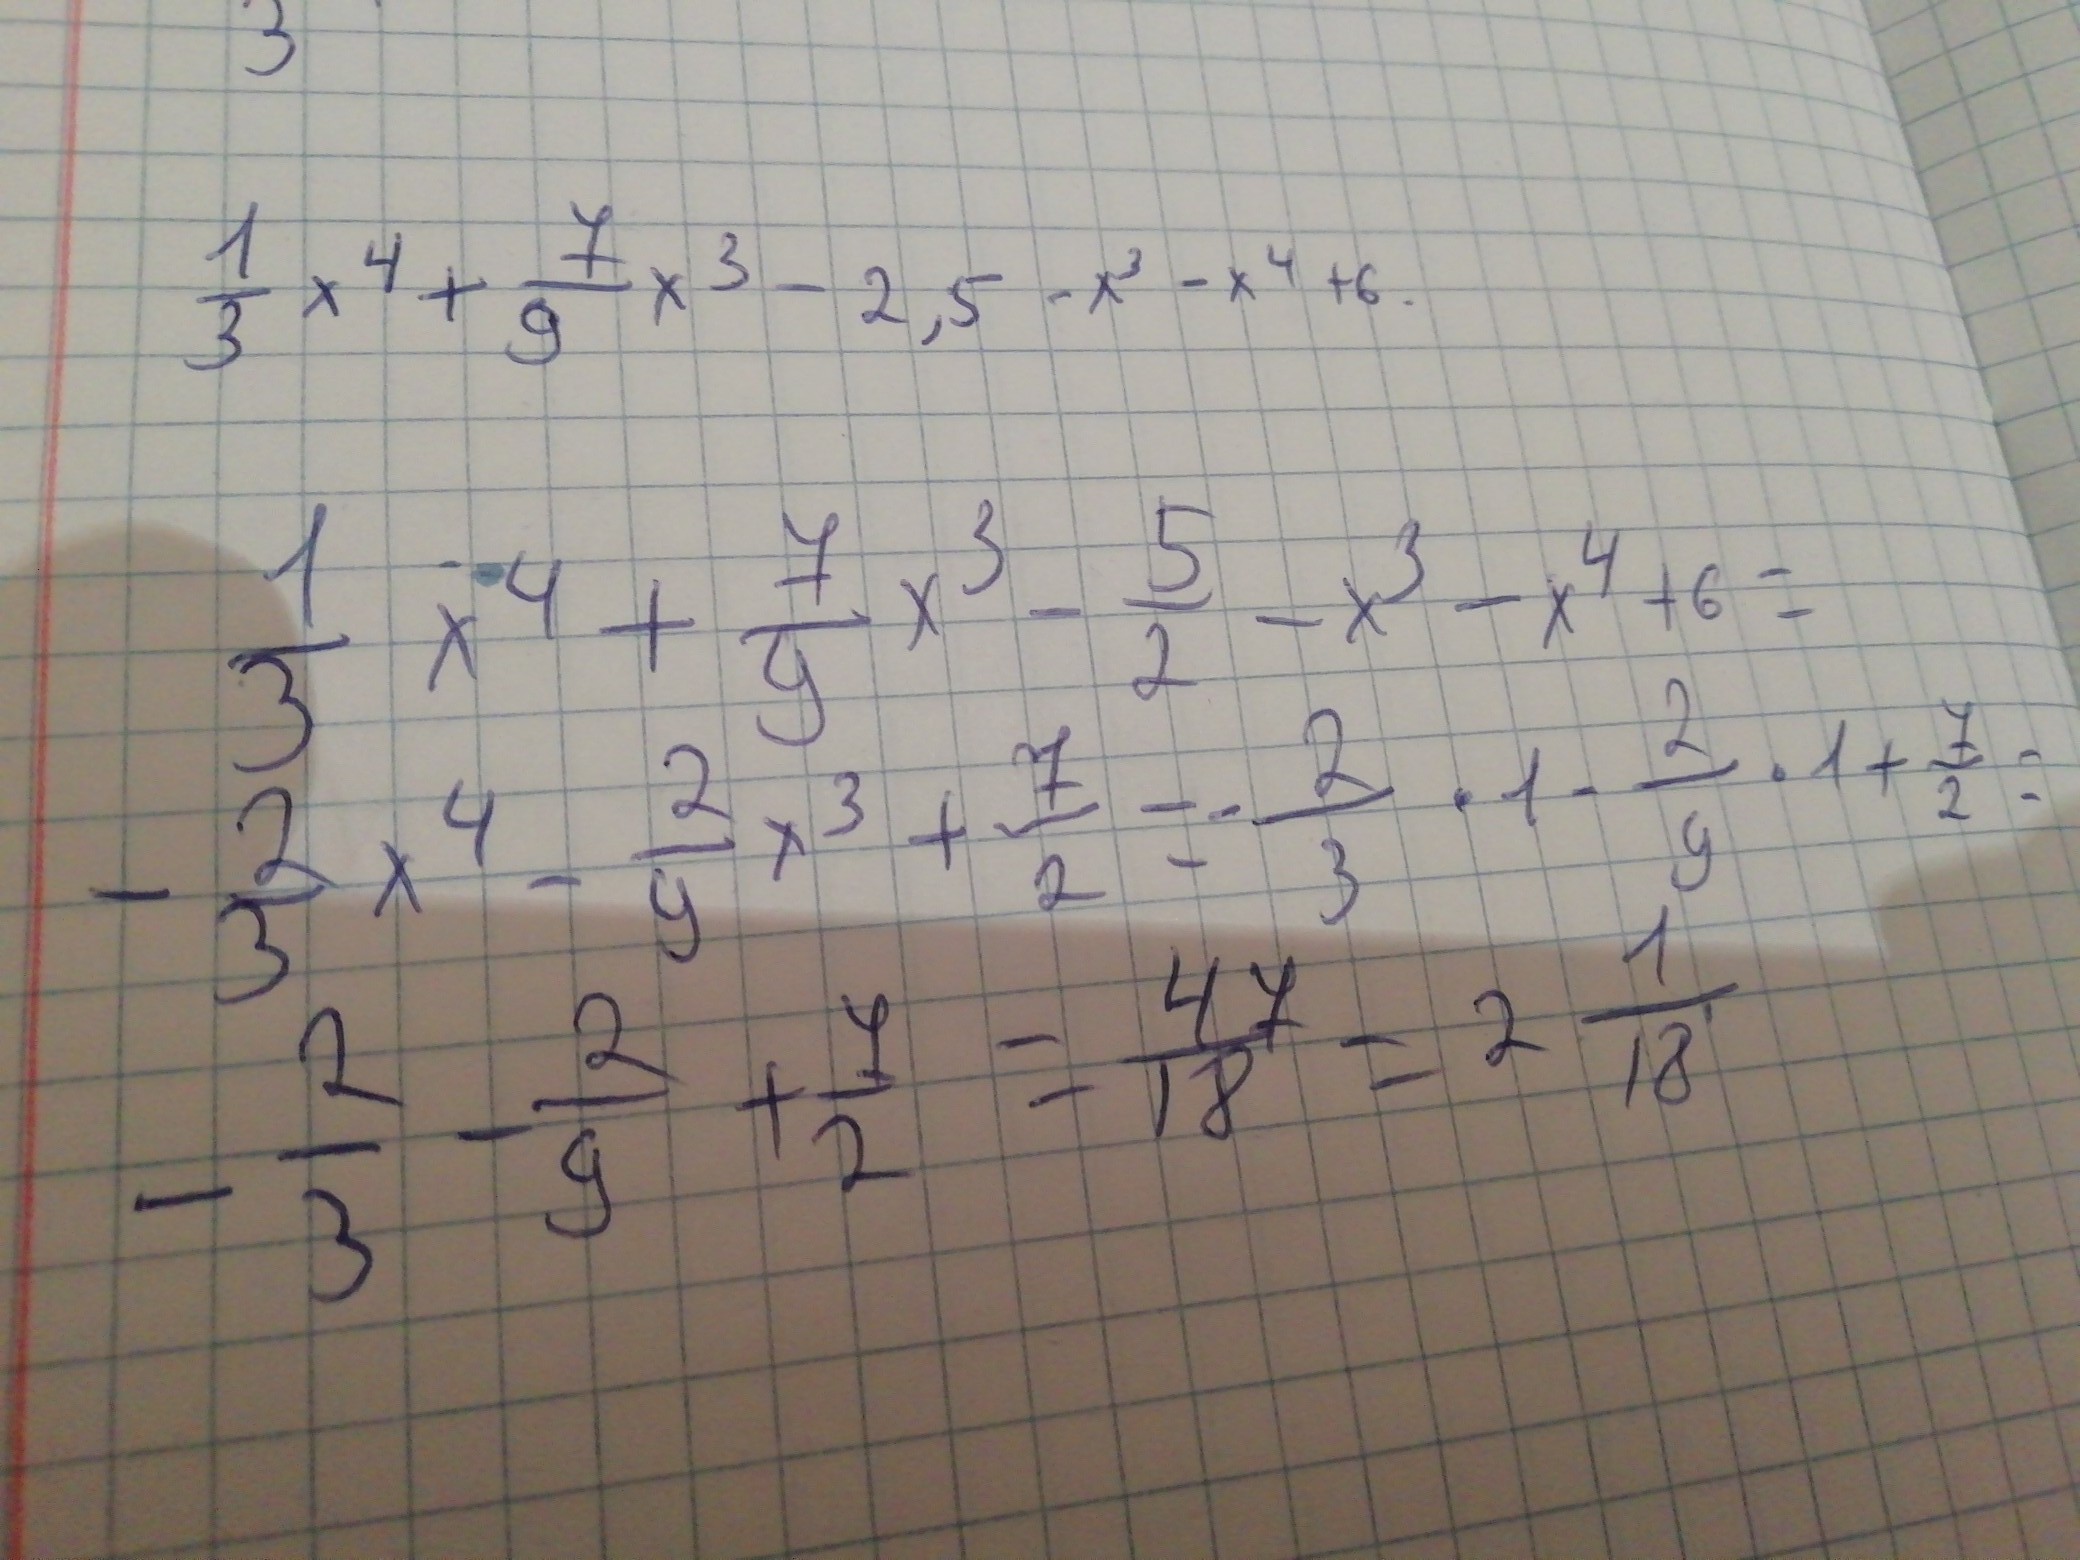 3
1/3 x⁴ + 7/9 x³ - 2,5 - x³ - x⁴ + 6.
1/3 x⁴ + 7/9 x³ - 5/2 - x³ - x⁴ + 6 =
- 2/3 x⁴ - 2/9 x³ + 7/2 = - 2/3 · 1 - 2/9 · 1 + 7/2 =
- 2/3 - 2/9 + 7/2 = 47/18 = 2 1/18